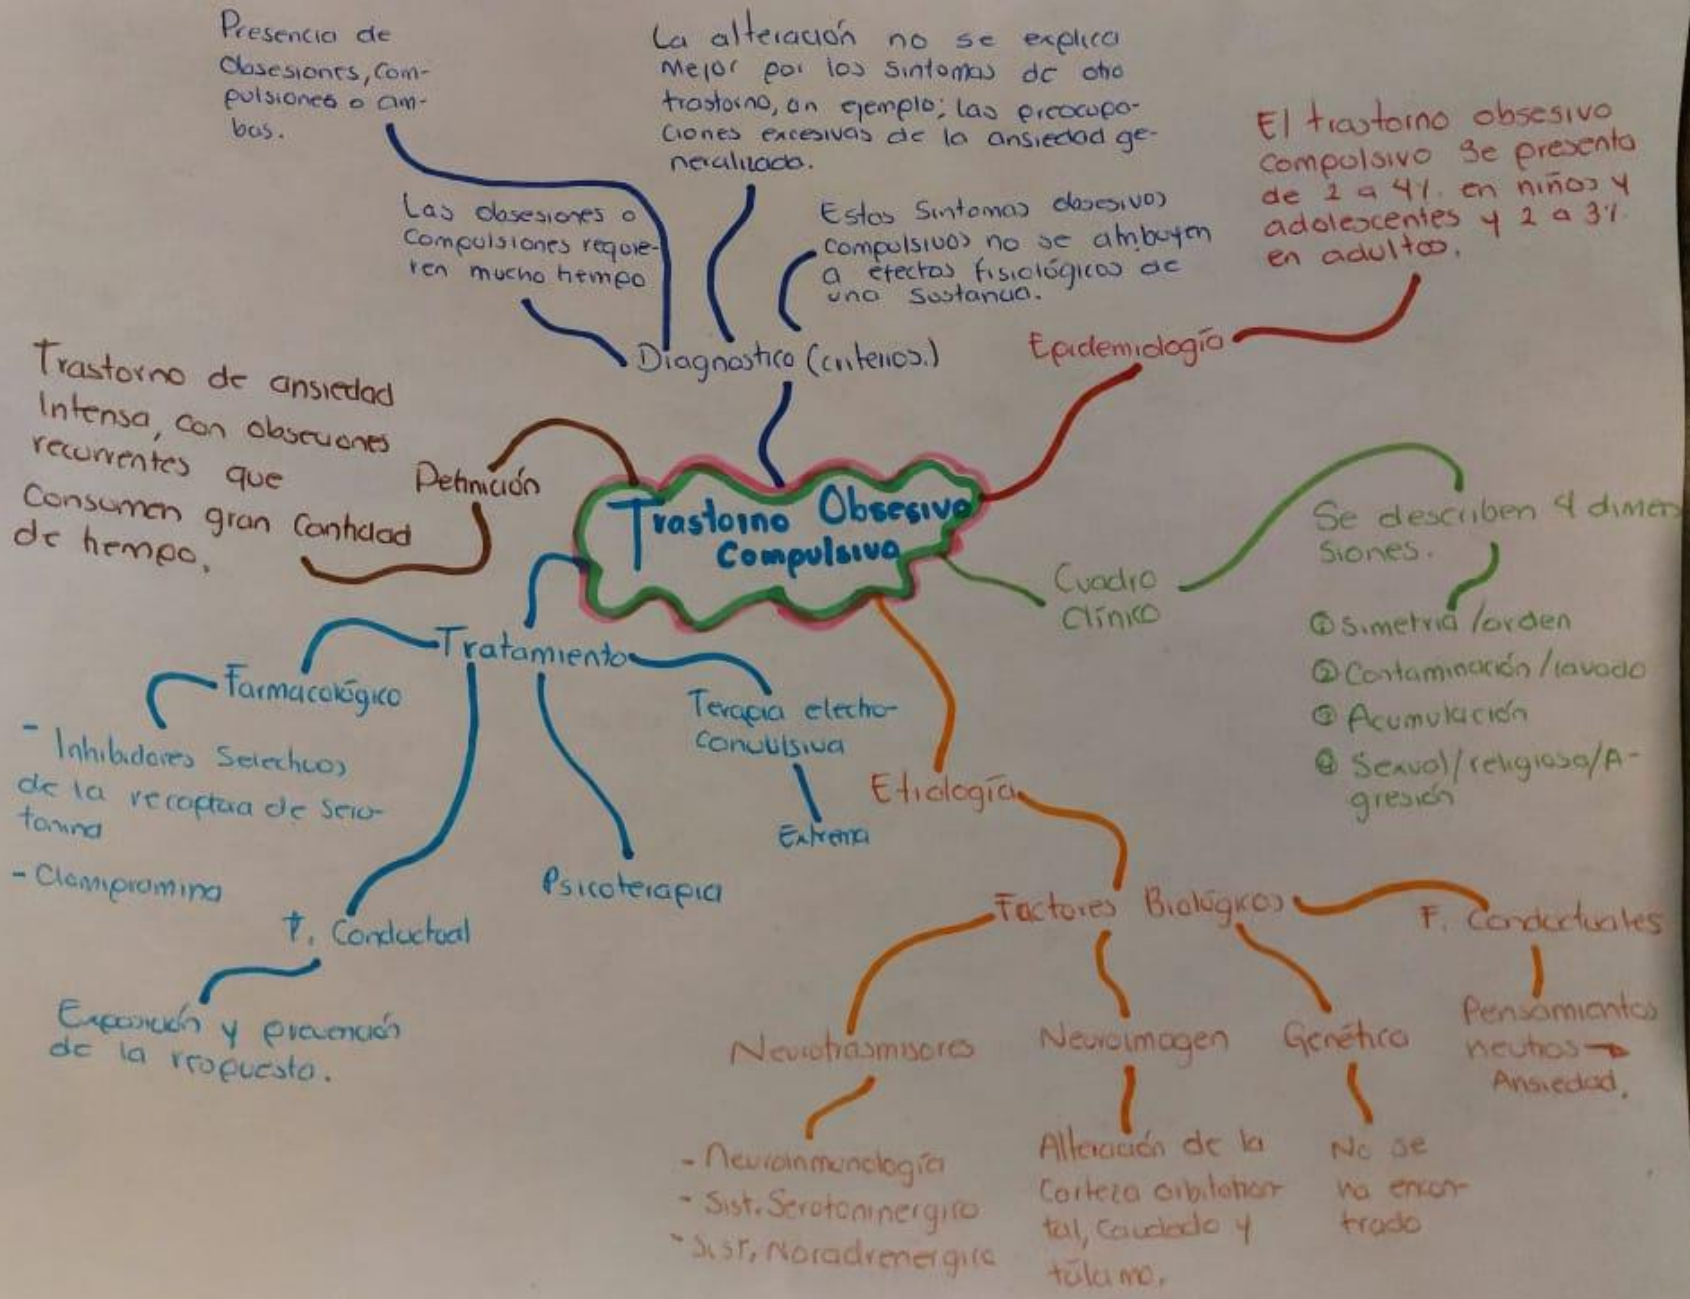 Presencia de
Obsesiones, com-
pulsiones o am-
bas.
La alteración no se explica
mejor por los sintomas de otro
trastorno, un ejemplo; las preocupa-
ciones excesivas de la ansiedad ge-
neralizada.
Las obsesiones o
compulsiones requie-
ren mucho tiempo
Estos sintomas obsesivos
compulsivos no se atribuyen
a efectos fisiológicos de
una sustancia.
El trastorno obsesivo
compulsivo se presenta
de 2 a 4% en niños y
adolescentes y 2 a 3%
en adultos.
Diagnostico (criterios.)
Epidemiología
Trastorno de ansiedad
Intensa, con obsesiones
recurrentes que
Consumen gran Cantidad
de tiempo.
Definición
Trastorno Obsesivo
Compulsivo
Cuadro
Clínico
Se describen 4 dimen
siones.
① Simetría/orden
② Contaminación/lavado
③ Acumulación
④ Sexual/religiosa/A-
gresión
Tratamiento
Farmacológico
- Inhibidores Selectivos
de la recaptura de Sero-
tonina
- Clomipramina
Terapia electro-
convulsiva
Extrema
Psicoterapia
T. Conductual
Exposición y prevención
de la respuesta.
Etiología
Factores Biológicos
F. Conductuales
Pensamientos
neutros →
Ansiedad.
Neurotrasmisores
- Neuroinmunología
- Sist. Serotoninergico
- Sist. Noradrenergico
Neuroimagen
Alteración de la
Corteza orbitofron
tal, Caudado y
tálamo.
Genética
No se
ha encon-
trado